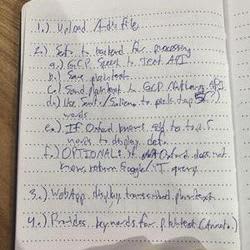 1.) Upload Audio file
2.) Sent to backend for processing
a.) GCP Speech to Text API
b.) Save plaintext
c.) Send plaintext to GCP Nat Lang API
d.) Use Sent./Salience to pick top 5
e.) If Oxford knows add to top 5
words to display det.
f.) OPTIONAL: if Oxford does not
know, return Google query
3.) WebApp display transcribed plaintext
4.) Provides keywords for plaintext